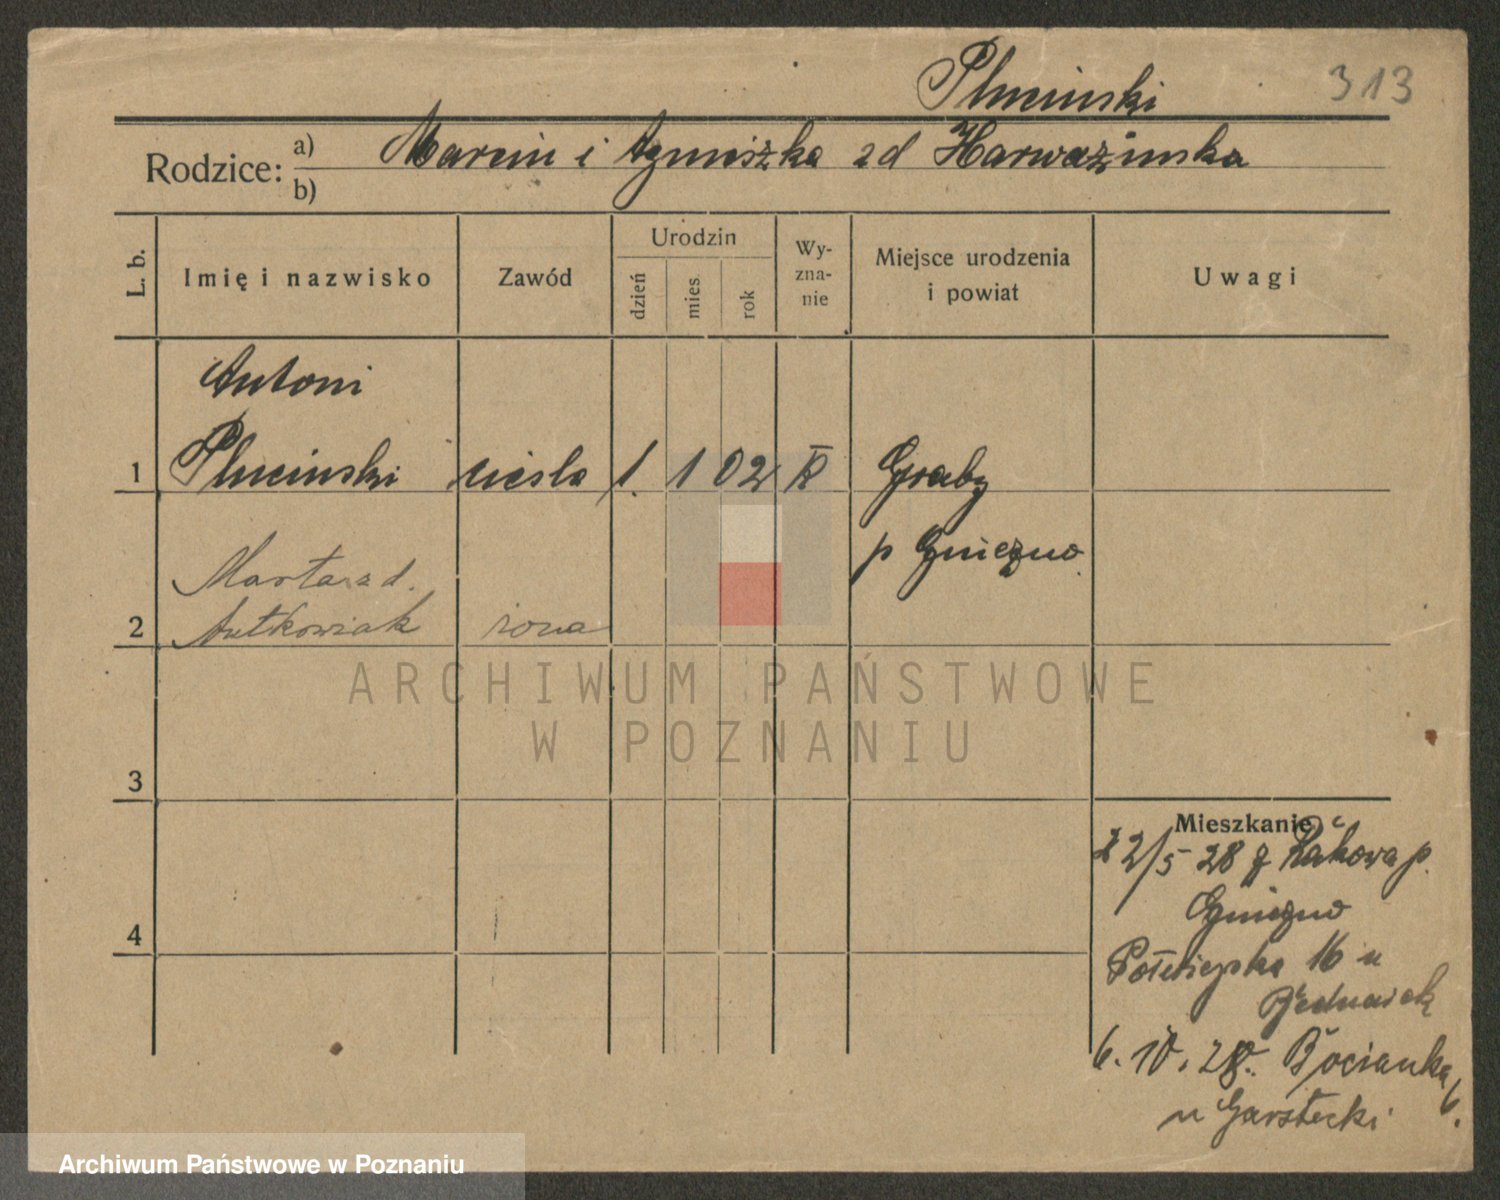 Plucinski 313
Rodzice: a) Marcin i Agnieszka zd
b)
L. b.
Imię i nazwisko
Zawód
Urodzin
dzień
mies
rok
Wy-
zna-
nie
Miejsce urodzenia
i powiat
Uwagi
Antoni
1 Plucinski ciesla 1. 1 02 K Graby
p Gniezno
Marta zd.
2 Antkowiak żona
ARCHIWUM PAŃSTWOWE
W POZNANIU
3
Mieszkanie
22/5 28 z p.
Gniezno
4
16 u
Bednarek
6. 10. 28. Bocianka 6.
u Garstecki
Archiwum Państwowe w Poznaniu